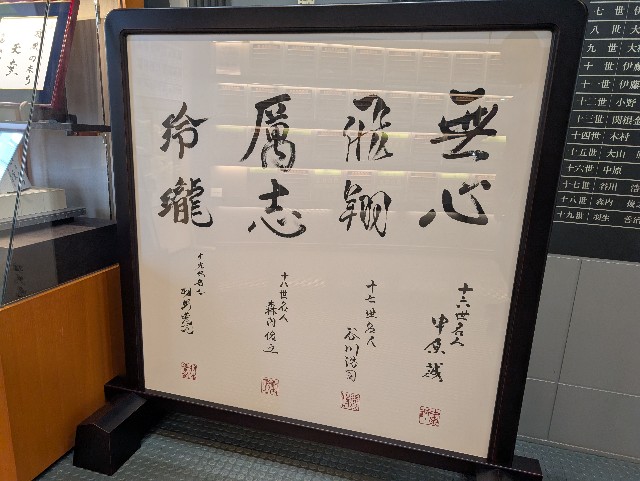 無心
十六世名人
中原誠
飛翔
十七世名人
谷川浩司
厲志
十八世名人
森内俊之
玲瓏
十九世名人
羽生善治
七世
八世
九世
十世 伊藤
十一世 伊藤
十二世 小野
十三世 関根金
十四世 木村
十五世 大山
十六世 中原
十七世 谷川 浩
十八世 森内 俊之
十九世 羽生 善治